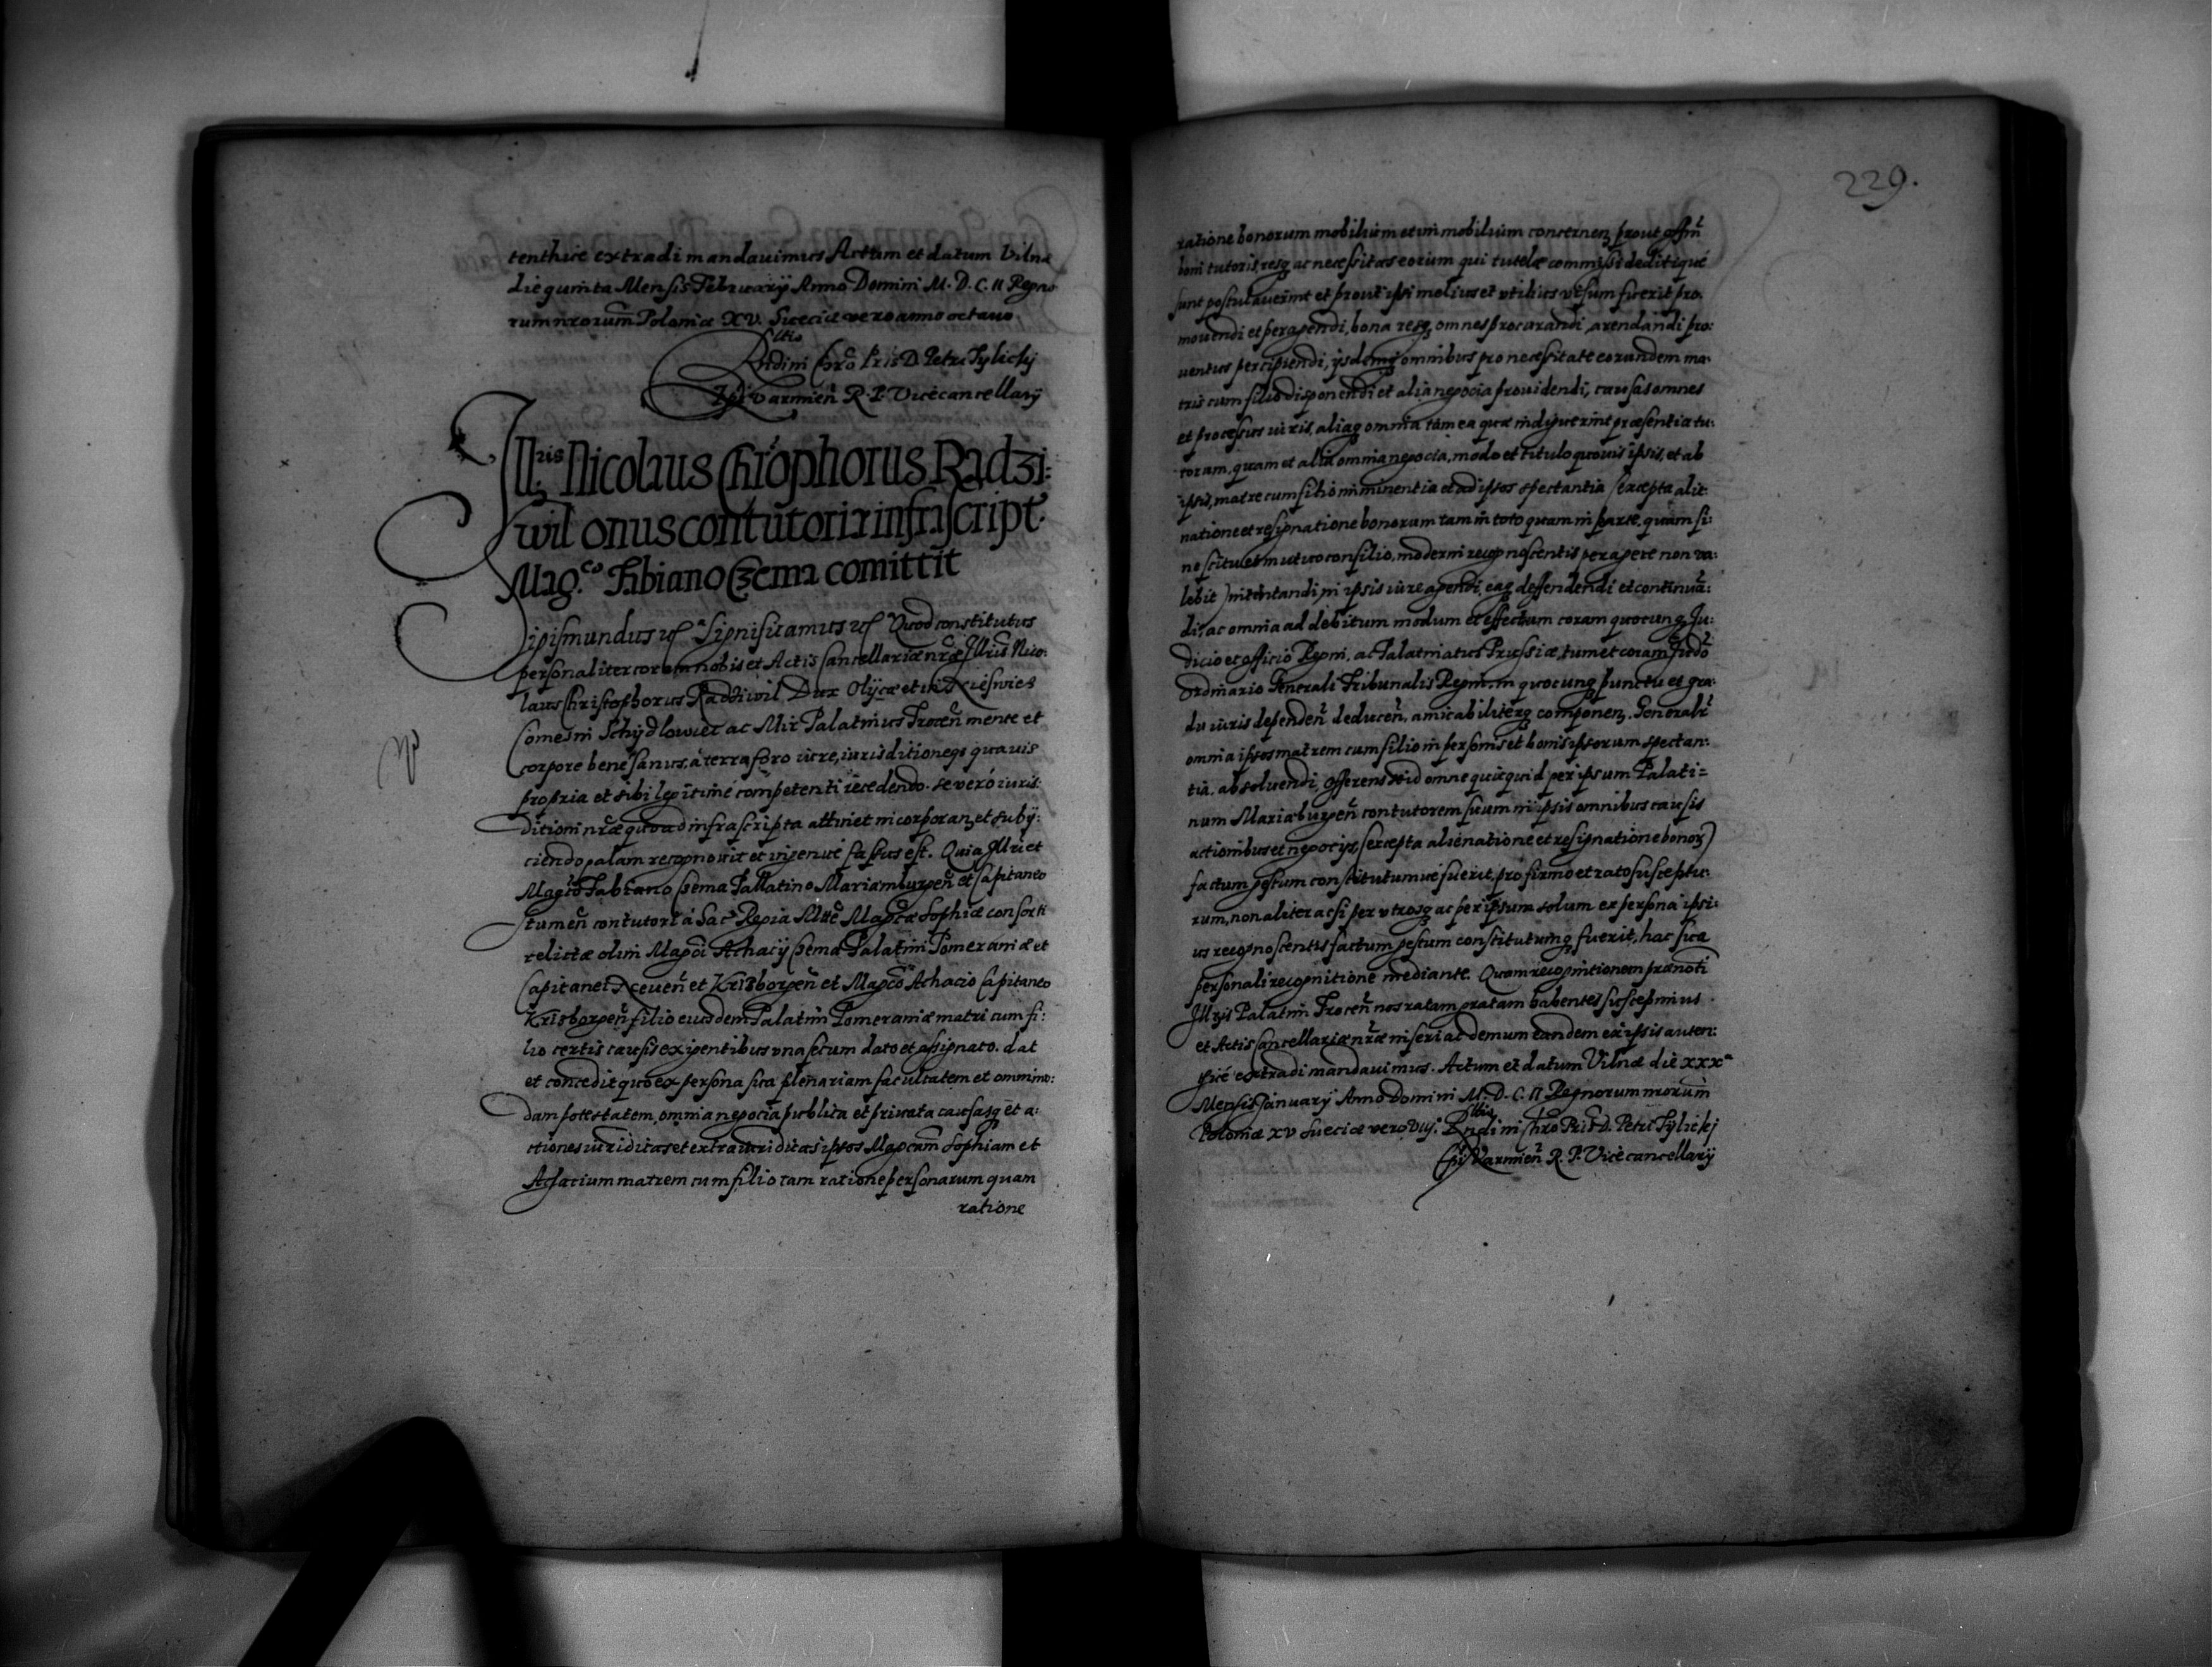 tenthice extradi mandauimus Actum et datum Vilnæ
die quinta Mensis February Anno Domini M. D. C. II Regno
rum nrorum Poloniæ XV. Sueciæ vero anno octauo
Rndini Chro Pris D. Petri Tylicky
Epi Varmien R. P. Vicecancellary
Illris Nicolaus Chrophorus Radzi:
wil onus contutori infrascript.
Mag.co Fabiano Czema comittit
Sigismundus etc Significamus etc Quod constitutus
personaliter coram nobis et Actis Cancellariæ nræ Illris Nico:
laus Christophorus Radziwil Dux Olycæ et in Nieswies
Comes in Schydlowiec ac Mir Palatinus Trocen mente et
corpore bene sanus, à terra foro iure, iurisditioneqs quauis
propria et sibi legitime competenti recedendo. se vero iuris:
ditioni nræ quoad infrascripta attinet incorporanz et suby:
ciendo palam recognouit et ingenue fassus est. Quia Illri et
Magco Fabiano Czema Pallatino Mariamburgen et Capitaneo
Stumen contutori à Sac. Regia Mtte Magcæ Sophiæ consorti
relictæ olim Magci Achacy Czema Palatini Pomeraniæ et
Capitanei Neuen et Krisborgen et Magco Achacio Capitaneo
Krisborgen filio eiusdem Palatini Pomeraniæ matri cum fi:
lio certis causis exigentibus una secum dato et assignato. dat
et concedit quo ex persona sua plenariam facultatem et omnimo:
dam potestatem, omnia negocia publica et priuata causasq et a:
ctiones iuridicas et extraiuridicas ipsos Magcam Sophiam et
Achacium matrem cum filio tam ratione personarum quam
ratione
229.
ratione bonorum mobilium et immobilium concernenz prout offm
boni tutoris resq ac necessitas eorum qui tutelæ commissi deditiqué
sunt postulauerint et prout ipsi melius et vtilius visum fuerit pro:
mouendi et peragendi, bona resq omnes procurandi, arendandi pro:
uentus percipiendi, ysdemq omnibus pro necessitate eorundem ma:
tris cum filio disponendi et alia negocia prouidendi, causas omnes
et processus iuris, aliaq omnia tam ea quæ indiguerint præsentia tu:
torum, quam et alia omnia negocia, modo et titulo quouis ipsis, et ab
ipsis, matre cum filio imminentia et ad ipsos spectantia (excepta alie:
natione et resignatione bonorum tam in toto quam in parte, quam si:
ne scitu et mutuo consilio, moderni recognoscentis peragere non va:
lebit) intentandi, in ipsis iure agendi, eaq deffendendi et continuan:
di, ac omnia ad debitum modum et effectum coram quocunq Ju:
dicio et officio Regni, ac Palatinatus Prussiæ, tum et coram Judo
Ordinario Generali Tribunalis Regni, in quocunq punctu et gra:
du iuris dependen deducen, amicabiliterq componenz. Generalr
omnia ipsos matrem cum filio in personis et bonis ipsorum spectan:
tia. absoluendi, offerens se id omne quicquid per ipsum Palati=
num Mariaburgen contutorem suum in ipsis omnibus causis
actionibus et negocys (excepta alienatione et resignatione bonorz)
factum gestum constitutumue fuerit, pro firmo et rato susceptu:
rum, non aliter ac si per vtrosq ac per ipsum solum ex persona ipsi:
us recognoscentis factum gestum constitutumq fuerit, hac sua
personali recognitione mediante. Quam recognitionem prænoti
Illris Palatini Trocen nos ratam gratam habentes suscepimus
et Actis Cancellariæ nræ inseri ac demum eandem ex ipsis auten:
tice extradi mandauimus. Actum et datum Vilnæ die xxxa
Mensis January Anno Domini M. D. C. II Regnorum nrorum
Poloniæ xv Sueciæ vero viij. Rndini Chro Pris D. Petri Tylickj
Epi Varmien R. P. Vicecancellary